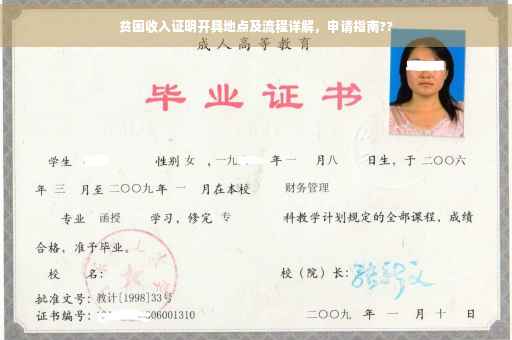 贫困收入证明开具地点及流程详解，申请指南??
成人高等教育
毕业证书
学生 性别 女 ，一九 年 一 月八 日生，于 二〇〇六
年 三 月至 二〇〇九 年 一 月在本校 财务管理
专业 函授 学习，修完 专 科教学计划规定的全部课程，成绩
合格，准予毕业。
校 名： 校（院）长：
批准文号：教计[1998]33号
证书编号： 06001310 二〇〇九 年 一 月 十 日